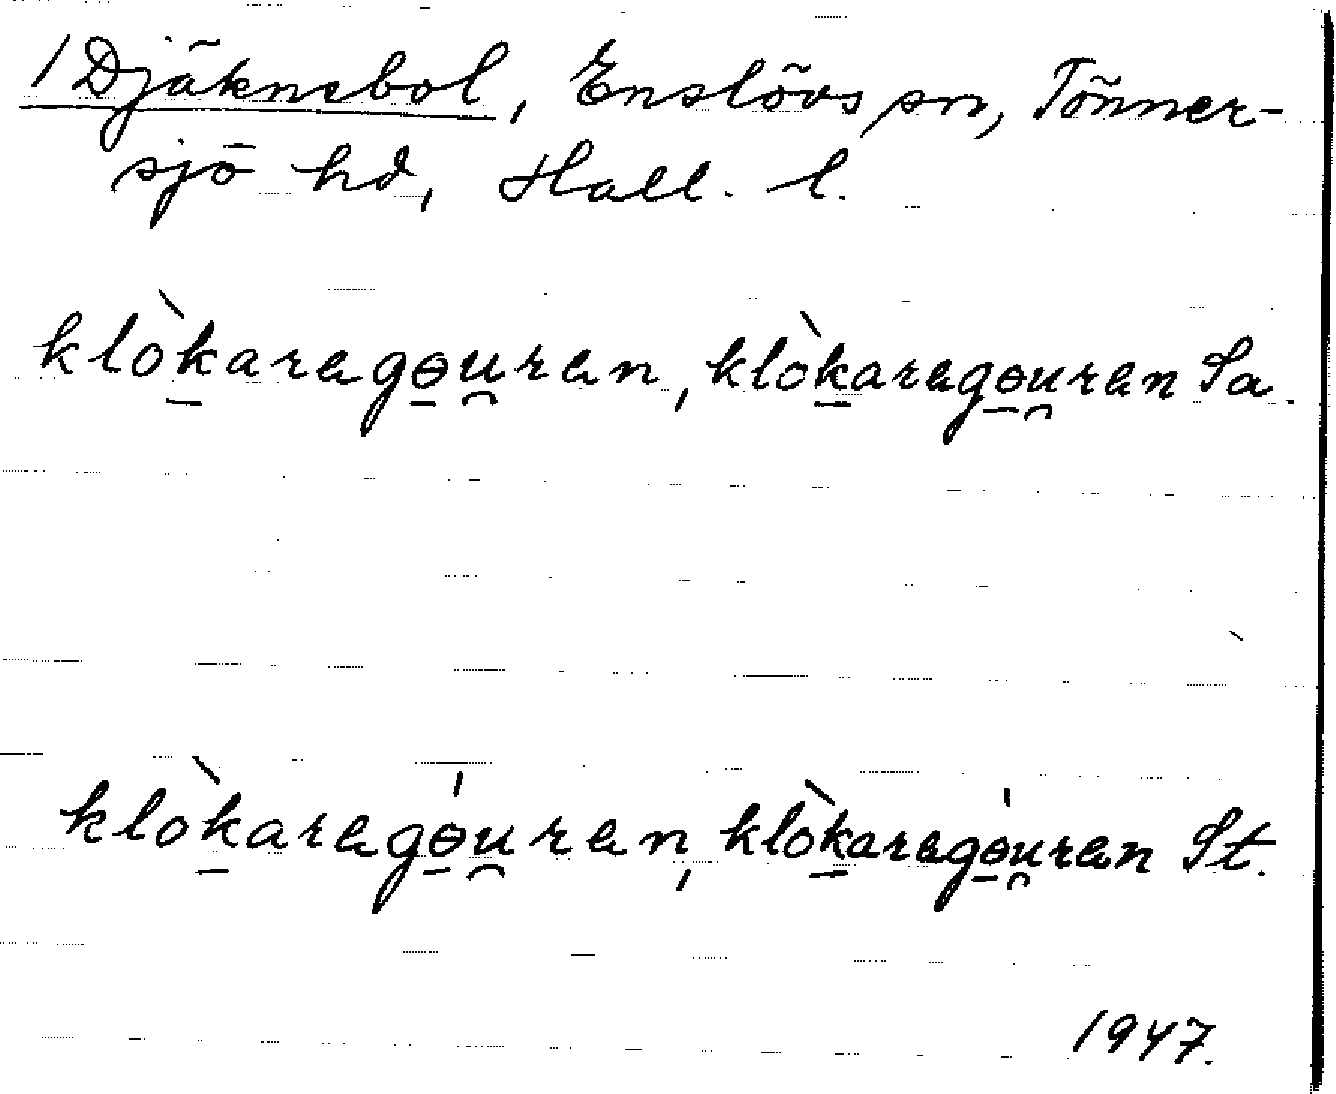 1 Djäknebol, Enslövs sn, Tönner-
sjö hd, Hall. l.
klòk̠arɐgɵ̠u̯rɐn, klòk̠arɐgɵ̠u̯rɐn Sa.
klòk̠arɐgɵ̠́u̯rɐn, klòk̠arɐgɵ̠́u̯rɐn St.
1947.